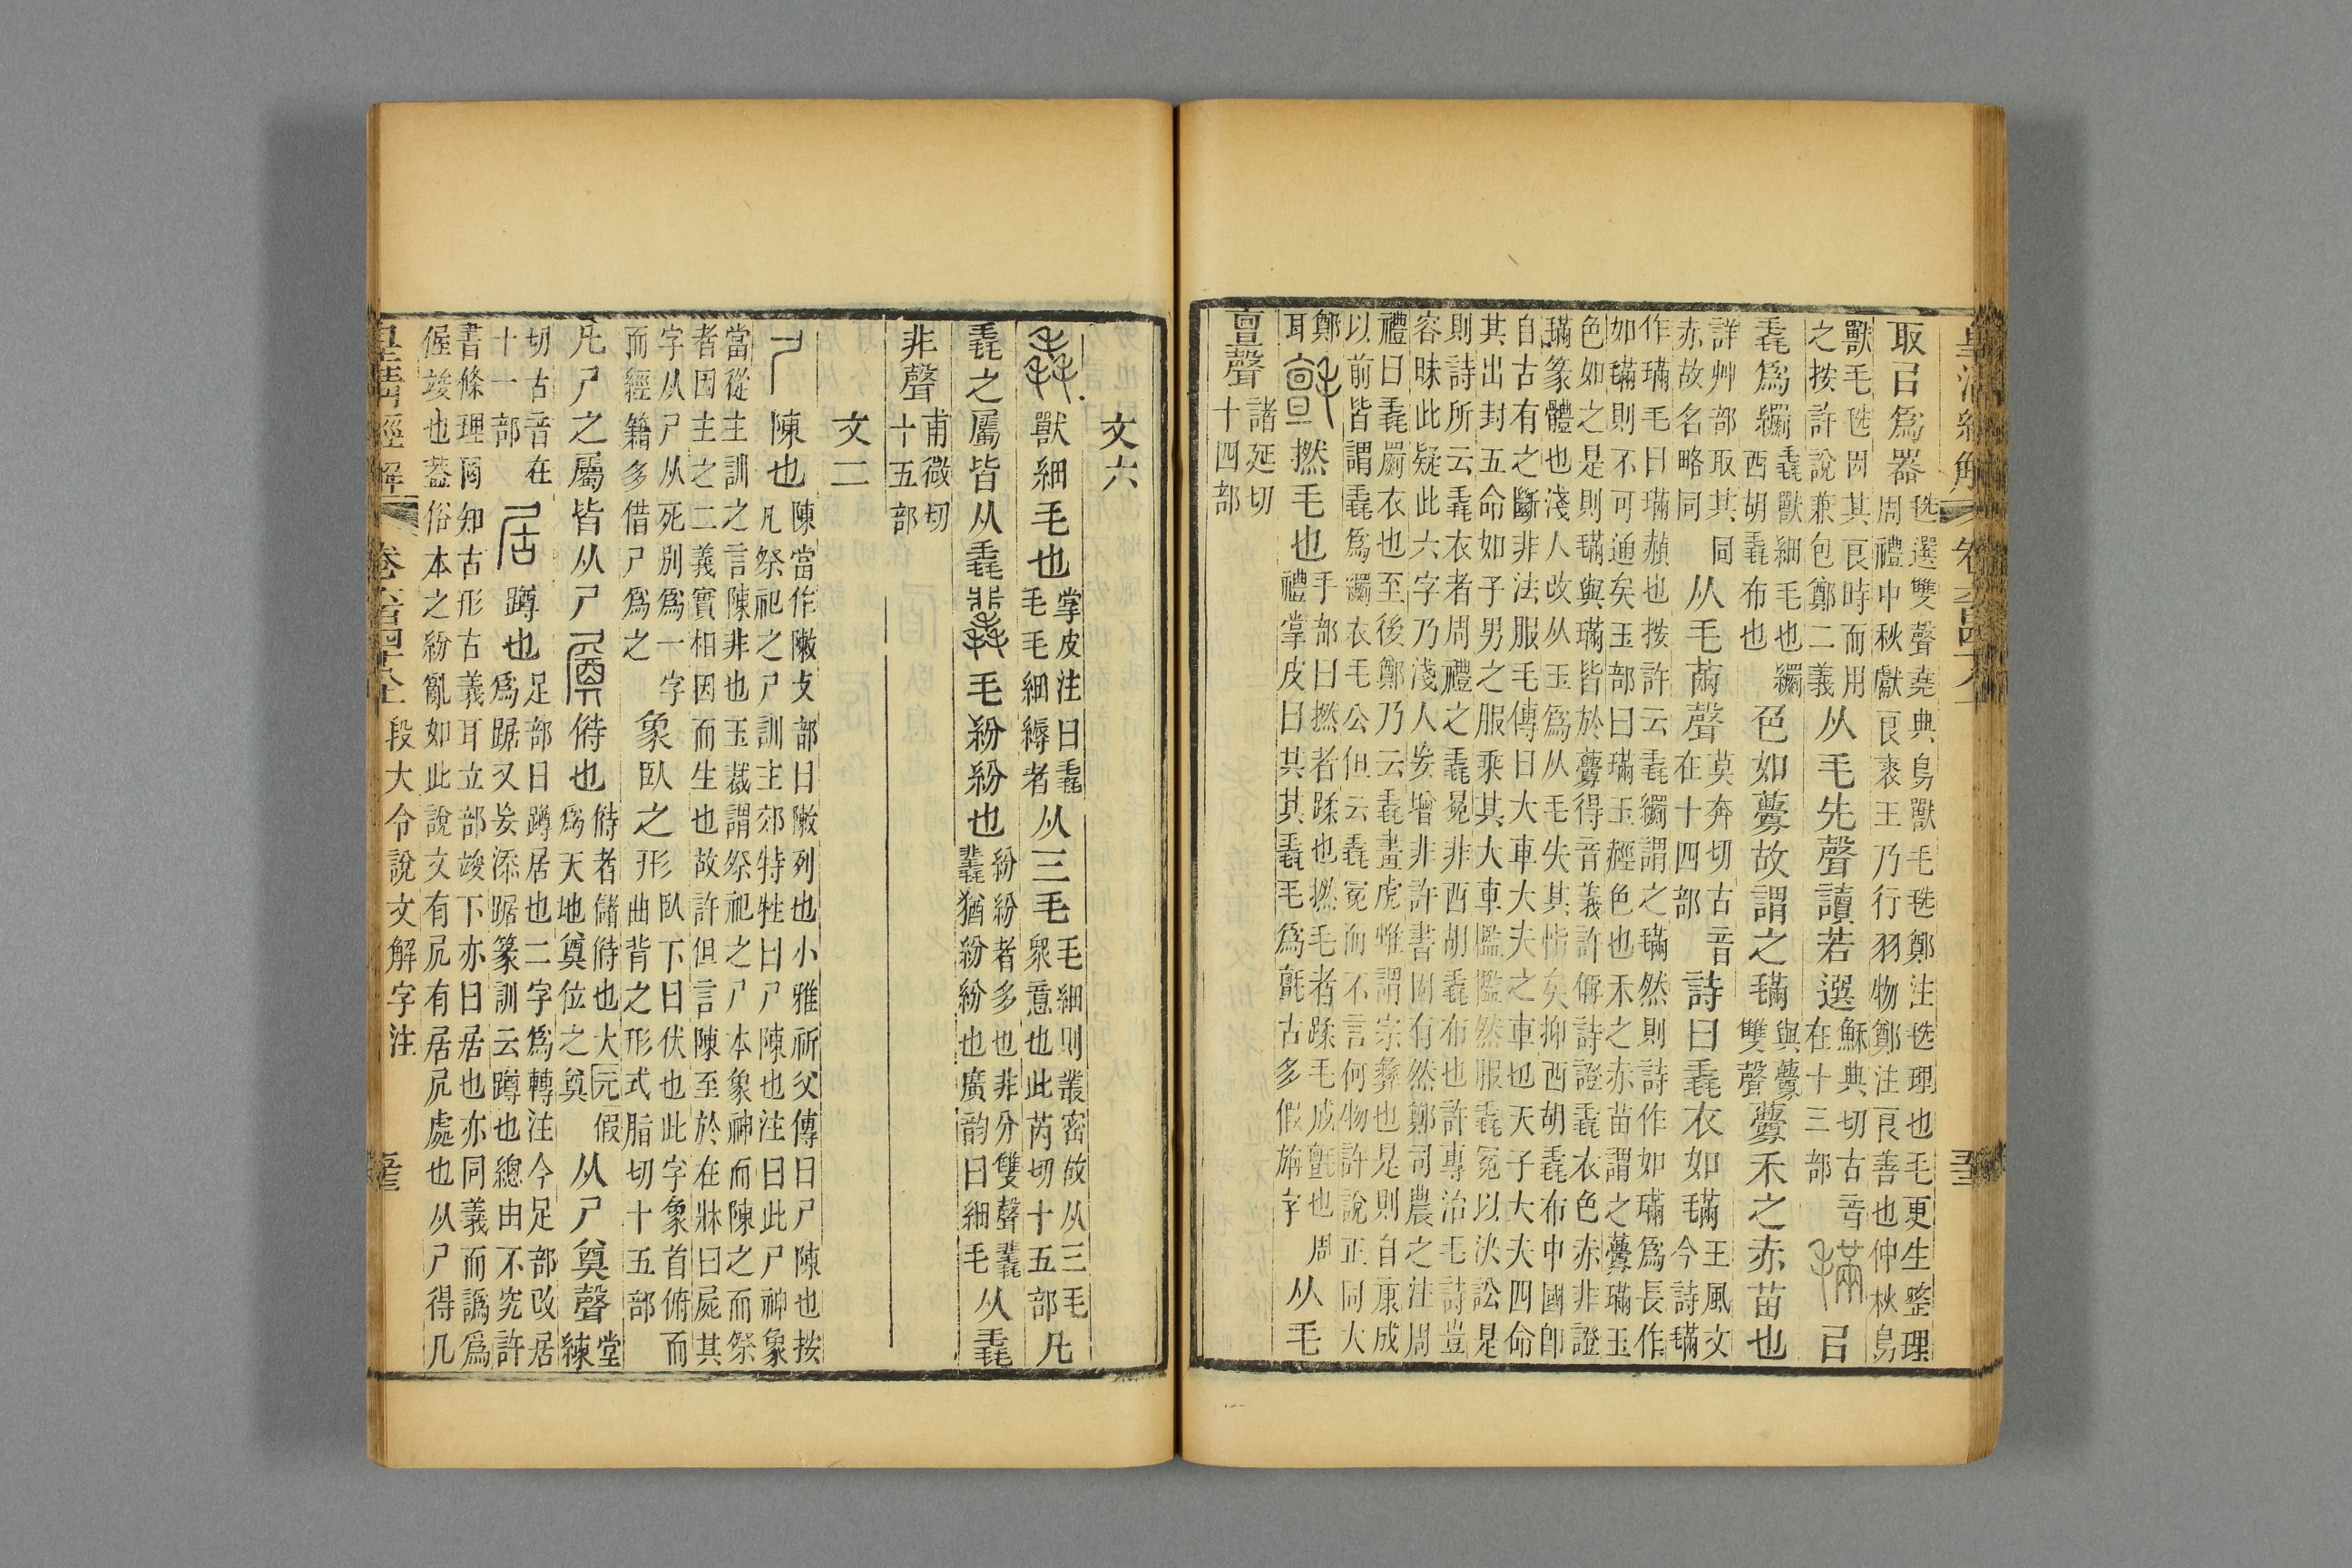 皇清經解 卷六百四十八上
取㠯爲器毨選雙聲堯典鳥獸毛毨鄭注毨理也毛更生整理周禮中秋獻良裘王乃行羽物鄭注良善也仲秋鳥
獸毛毨因其良時而用之按許說兼包鄭二義从毛先聲讀若選穌典切古音在十三部𣯩㠯
毳爲𦇧毳獸細毛也𦇧西胡毳布也色如虋故謂之𣯩與虋雙聲虋禾之赤苗也
詳艸部取其同赤故名略同从毛㒼聲莫奔切古音在十四部詩曰毳衣如𣯩王風文今詩𣯩
作璊毛曰璊赬也按許云毳𦇧謂之𣯩然則詩作如𣯩爲長作
如璊則不可通矣玉部曰璊玉經色也禾之赤苗謂之虋璊玉
色如之是則𣯩與璊皆於虋得音義許偁詩證毳衣色赤非證
𣯩篆體也淺人改从玉爲从毛失其恉矣抑西胡毳布中國卽
自古有之斷非法服毛傳曰大車大夫之車也天子大夫四命
其出封五命如子男之服乘其大車檻檻然服毳冕以決訟是
則詩所云毳衣者周禮之毳冕非西胡毳布也許專治毛詩豈
容昧此疑此六字乃淺人妄增非許書固有然鄭司農之注周
禮曰毳罽衣也至後鄭乃云毳畫虎蜼謂宗彝也是則自康成
以前皆謂毳爲𦇧衣毛公但云毳冕而不言何物許說正同大
鄭耳氈撚毛也手部曰撚者蹂也撚毛者蹂毛成氈也周禮掌皮曰共其毳毛爲氈古多假旃字从毛
亶聲諸延切十四部
文六
毳獸細毛也掌皮注曰毳毛毛細縟者从三毛毛細則叢密故从三毛眾意也此芮切十五部凡
毳之屬皆从毳𣰆毛紛紛也紛紛者多也非分雙聲𣰆𣰆猶紛紛也廣韵曰細毛从毳
非聲甫微切十五部
文二
尸陳也陳當作敶攴部曰敶列也小雅祈父傳曰尸陳也按凡祭祀之尸訓主郊特牲曰尸陳也注曰此尸神象
當從主訓之言陳非也玉裁謂祭祀之尸本象神而陳之而祭
者因主之二義實相因而生也故許但言陳至於在牀曰屍其
字从尸从死別爲一字而經籍多借尸爲之象臥之形臥下曰伏也此字象首俯而曲背之形式脂切十五部
凡尸之屬皆从尸𡳐偫也偫者儲偫也大元假爲天地奠位之奠从尸奠聲堂練
切古音在十一部居蹲也足部曰蹲居也二字爲轉注今足部改居爲踞又妄添踞篆訓云蹲也總由不究許
書條理罔知古形古義耳立部竣下亦曰居也亦同義而譌爲
偓竣也葢俗本之紛亂如此說文有凥有居凥處也从尸得几
皇清經解 卷六百四十八上 段大令說文解字注